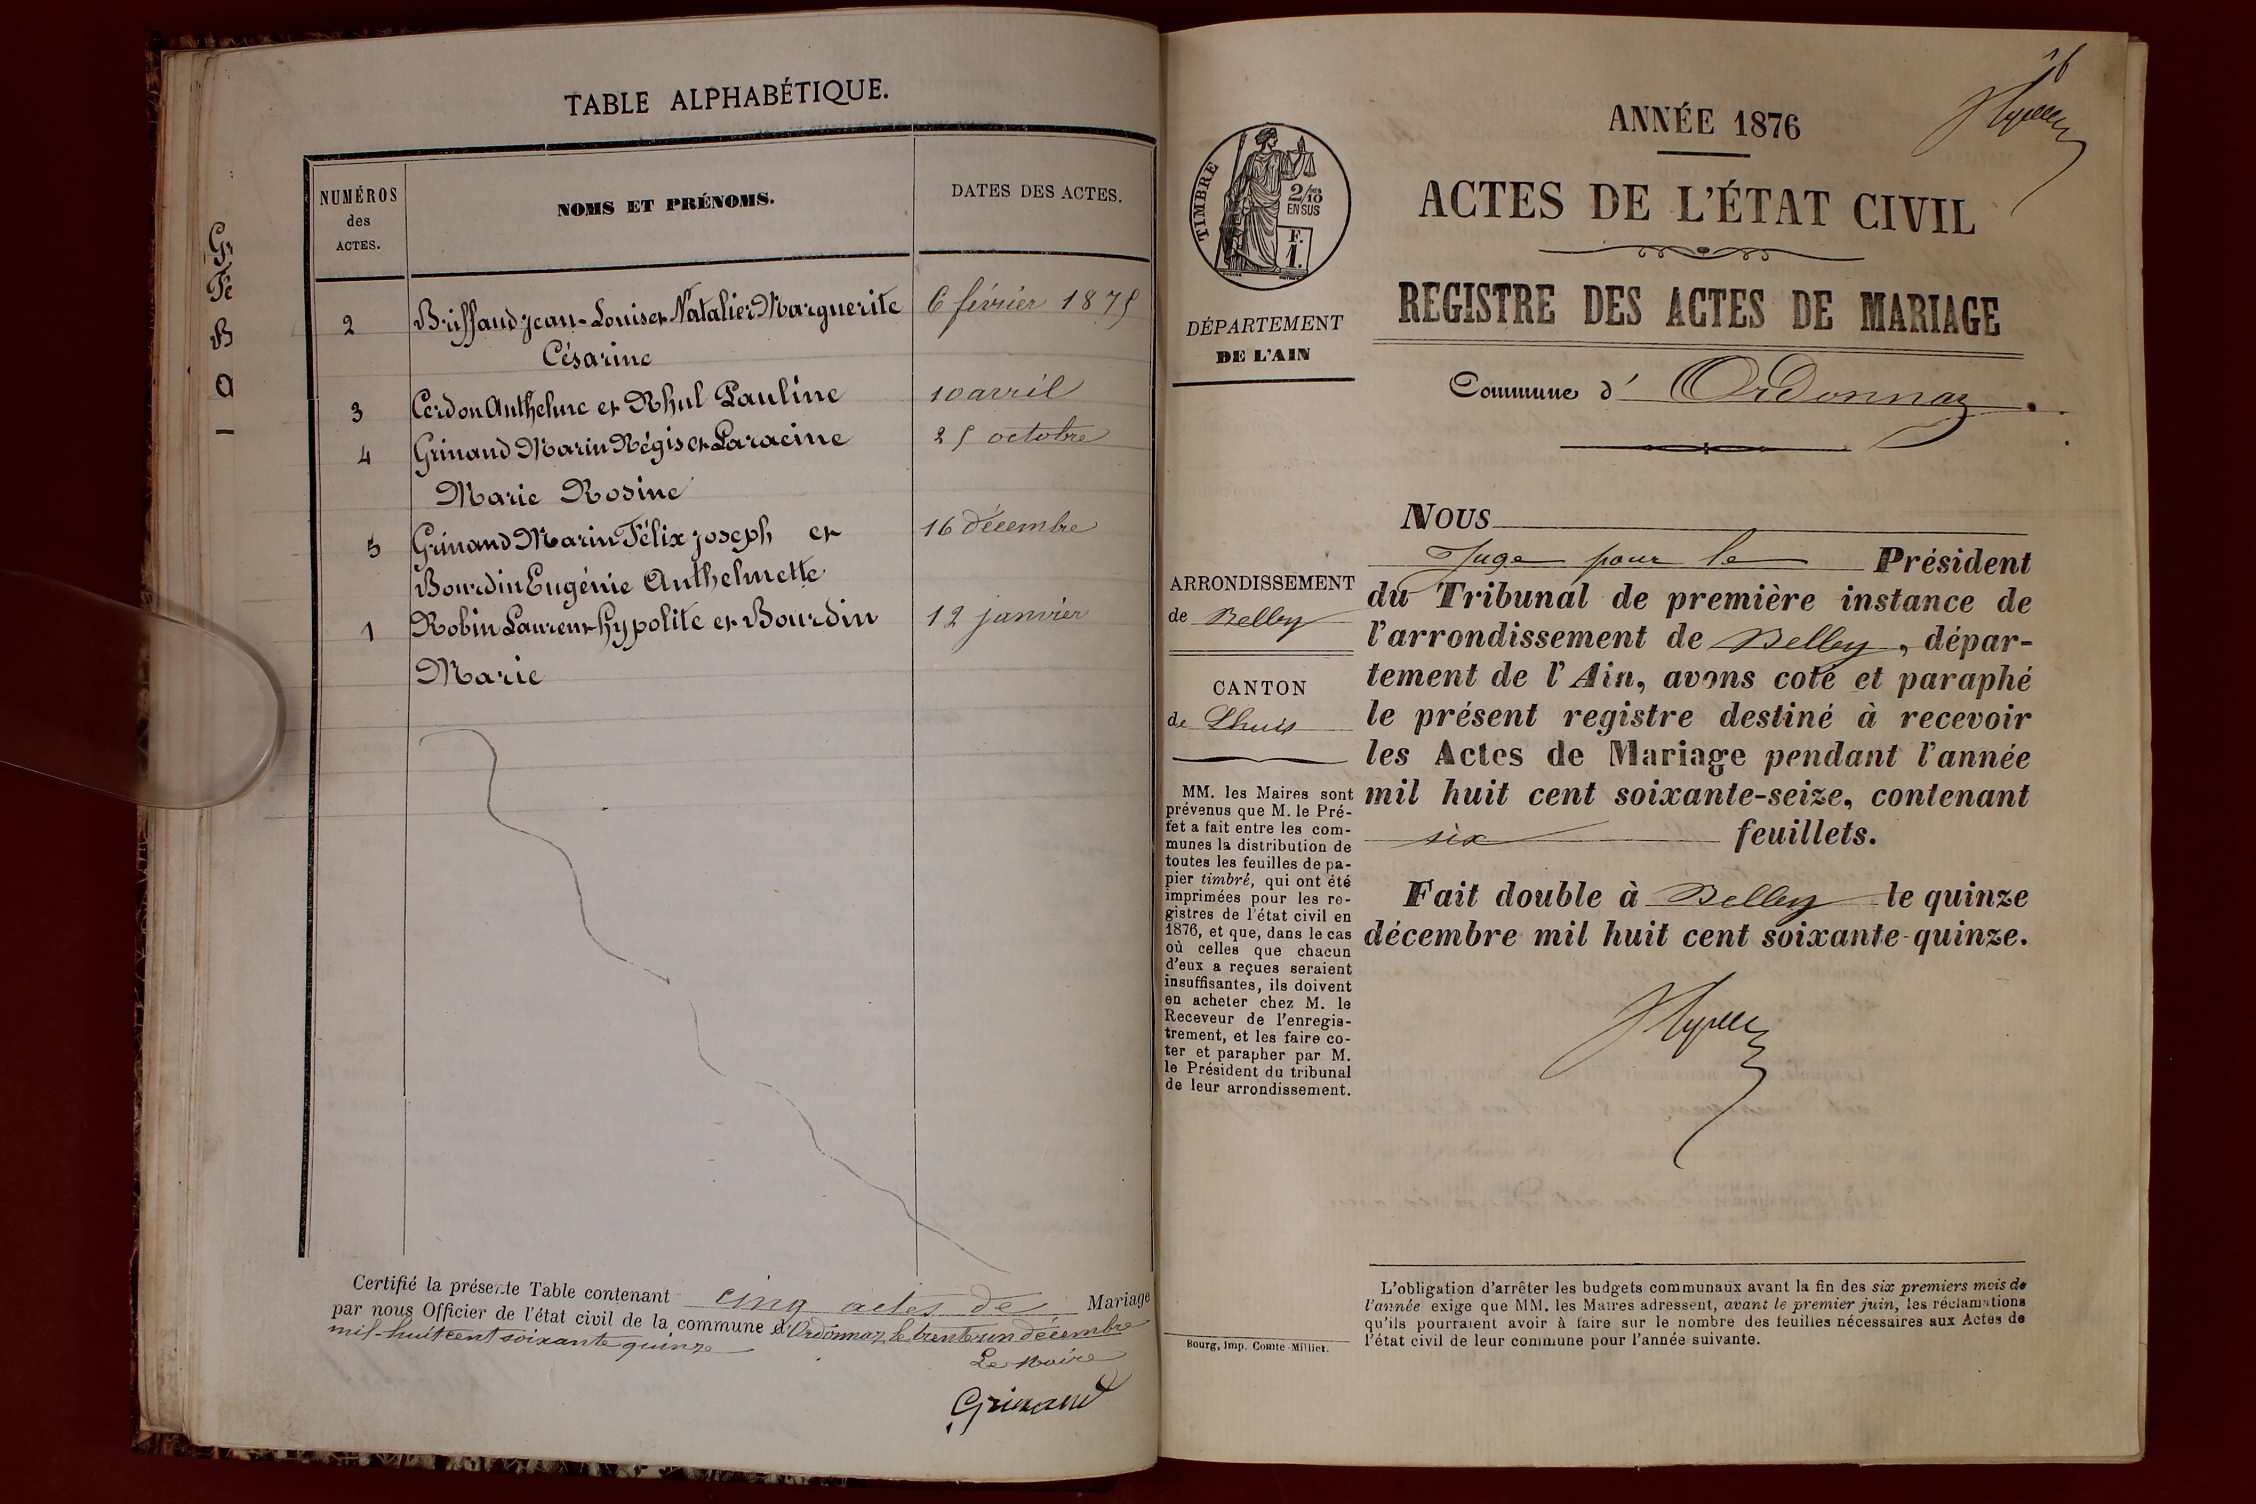 TABLE ALPHABÉTIQUE.
NUMÉROS
des
ACTES.
NOMS ET PRÉNOMS.
DATES DES ACTES.
2 Briffaud Jean-Louis et Natalier Marguerite 6 février 1875
Césarine
3 Cerdon Anthelme et Rhul Pauline 10 avril
4 Grinand Marin Régis et Paracine 25 octobre
Marie Rosine
5 Grinand Marin Félix joseph et 16 décembre
Bourdin Eugénie Anthelmette
1 Robin Laurent hypolite et Bourdin 12 janvier
Marie
Certifié la présente Table contenant cinq actes de Mariage
par nous Officier de l'état civil de la commune d'Ordonnaz, le trente un décembre
mil-huit cent soixante quinze
Le Maire
Grinand
Gr
Fé
B
a
ANNÉE 1876
ACTES DE L'ÉTAT CIVIL
REGISTRE DES ACTES DE MARIAGE
Commune d' Ordonnaz.
TIMBRE
2/10
EN SUS
F.
1.
DÉPARTEMENT
DE L'AIN
ARRONDISSEMENT
de Belley
CANTON
de Lhuis
MM. les Maires sont
prévenus que M. le Pré-
fet a fait entre les com-
munes la distribution de
toutes les feuilles de pa-
pier timbré, qui ont été
imprimées pour les re-
gistres de l'état civil en
1876, et que, dans le cas
où celles que chacun
d'eux a reçues seraient
insuffisantes, ils doivent
en acheter chez M. le
Receveur de l'enregis-
trement, et les faire co-
ter et parapher par M.
le Président du tribunal
de leur arrondissement.
Bourg, Imp. Comte-Milliet.
NOUS
Juge pour le Président
du Tribunal de première instance de
l'arrondissement de Belley, dépar-
tement de l'Ain, avons coté et paraphé
le présent registre destiné à recevoir
les Actes de Mariage pendant l'année
mil huit cent soixante-seize, contenant
six feuillets.
Fait double à Belley le quinze
décembre mil huit cent soixante-quinze.
L'obligation d'arrêter les budgets communaux avant la fin des six premiers mois de
l'année exige que MM. les Maires adressent, avant le premier juin, les réclamations
qu'ils pourraient avoir à faire sur le nombre des feuilles nécessaires aux Actes de
l'état civil de leur commune pour l'année suivante.